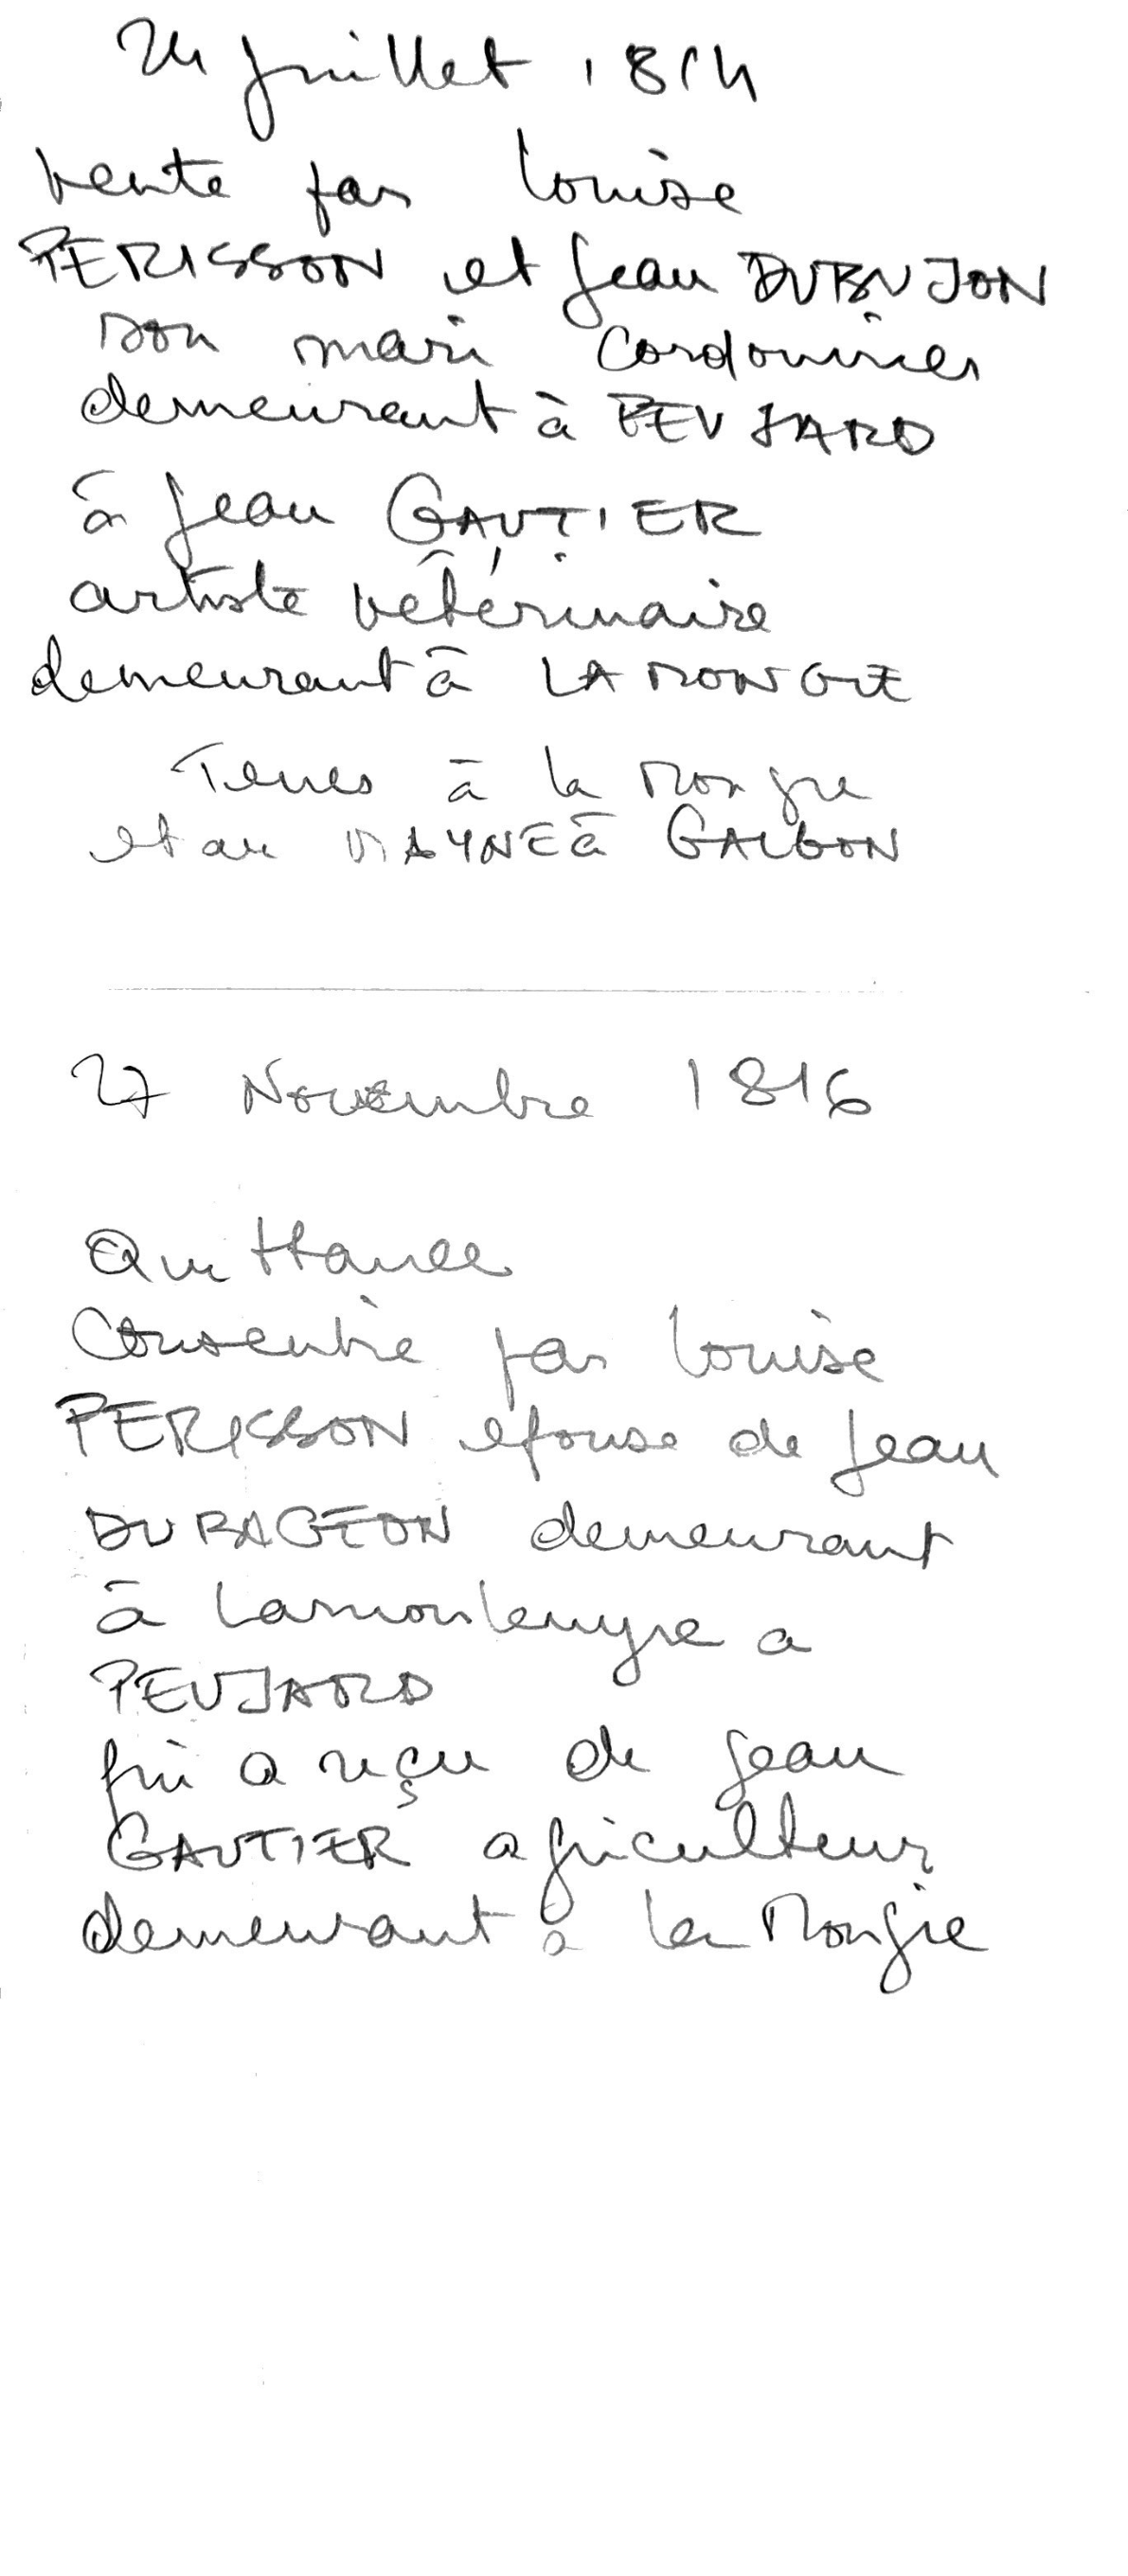 24 juillet 1814
vente par Louise
PERISSON et Jean DUBUJON
son mari Cordonnier
demeurant à PEUJARD
à Jean GAUTIER
artiste vétérinaire
demeurant à LA MONGIE
Terres à la Mongie
et au MAYNE à GALGON
27 Novembre 1816
Quittance
Consentie par Louise
PERISSON epouse de Jean
DUBAGEON demeurant
à a
PEUJARD
qui a reçu de Jean
GAUTIER agriculteur
demeurant à la Mongie